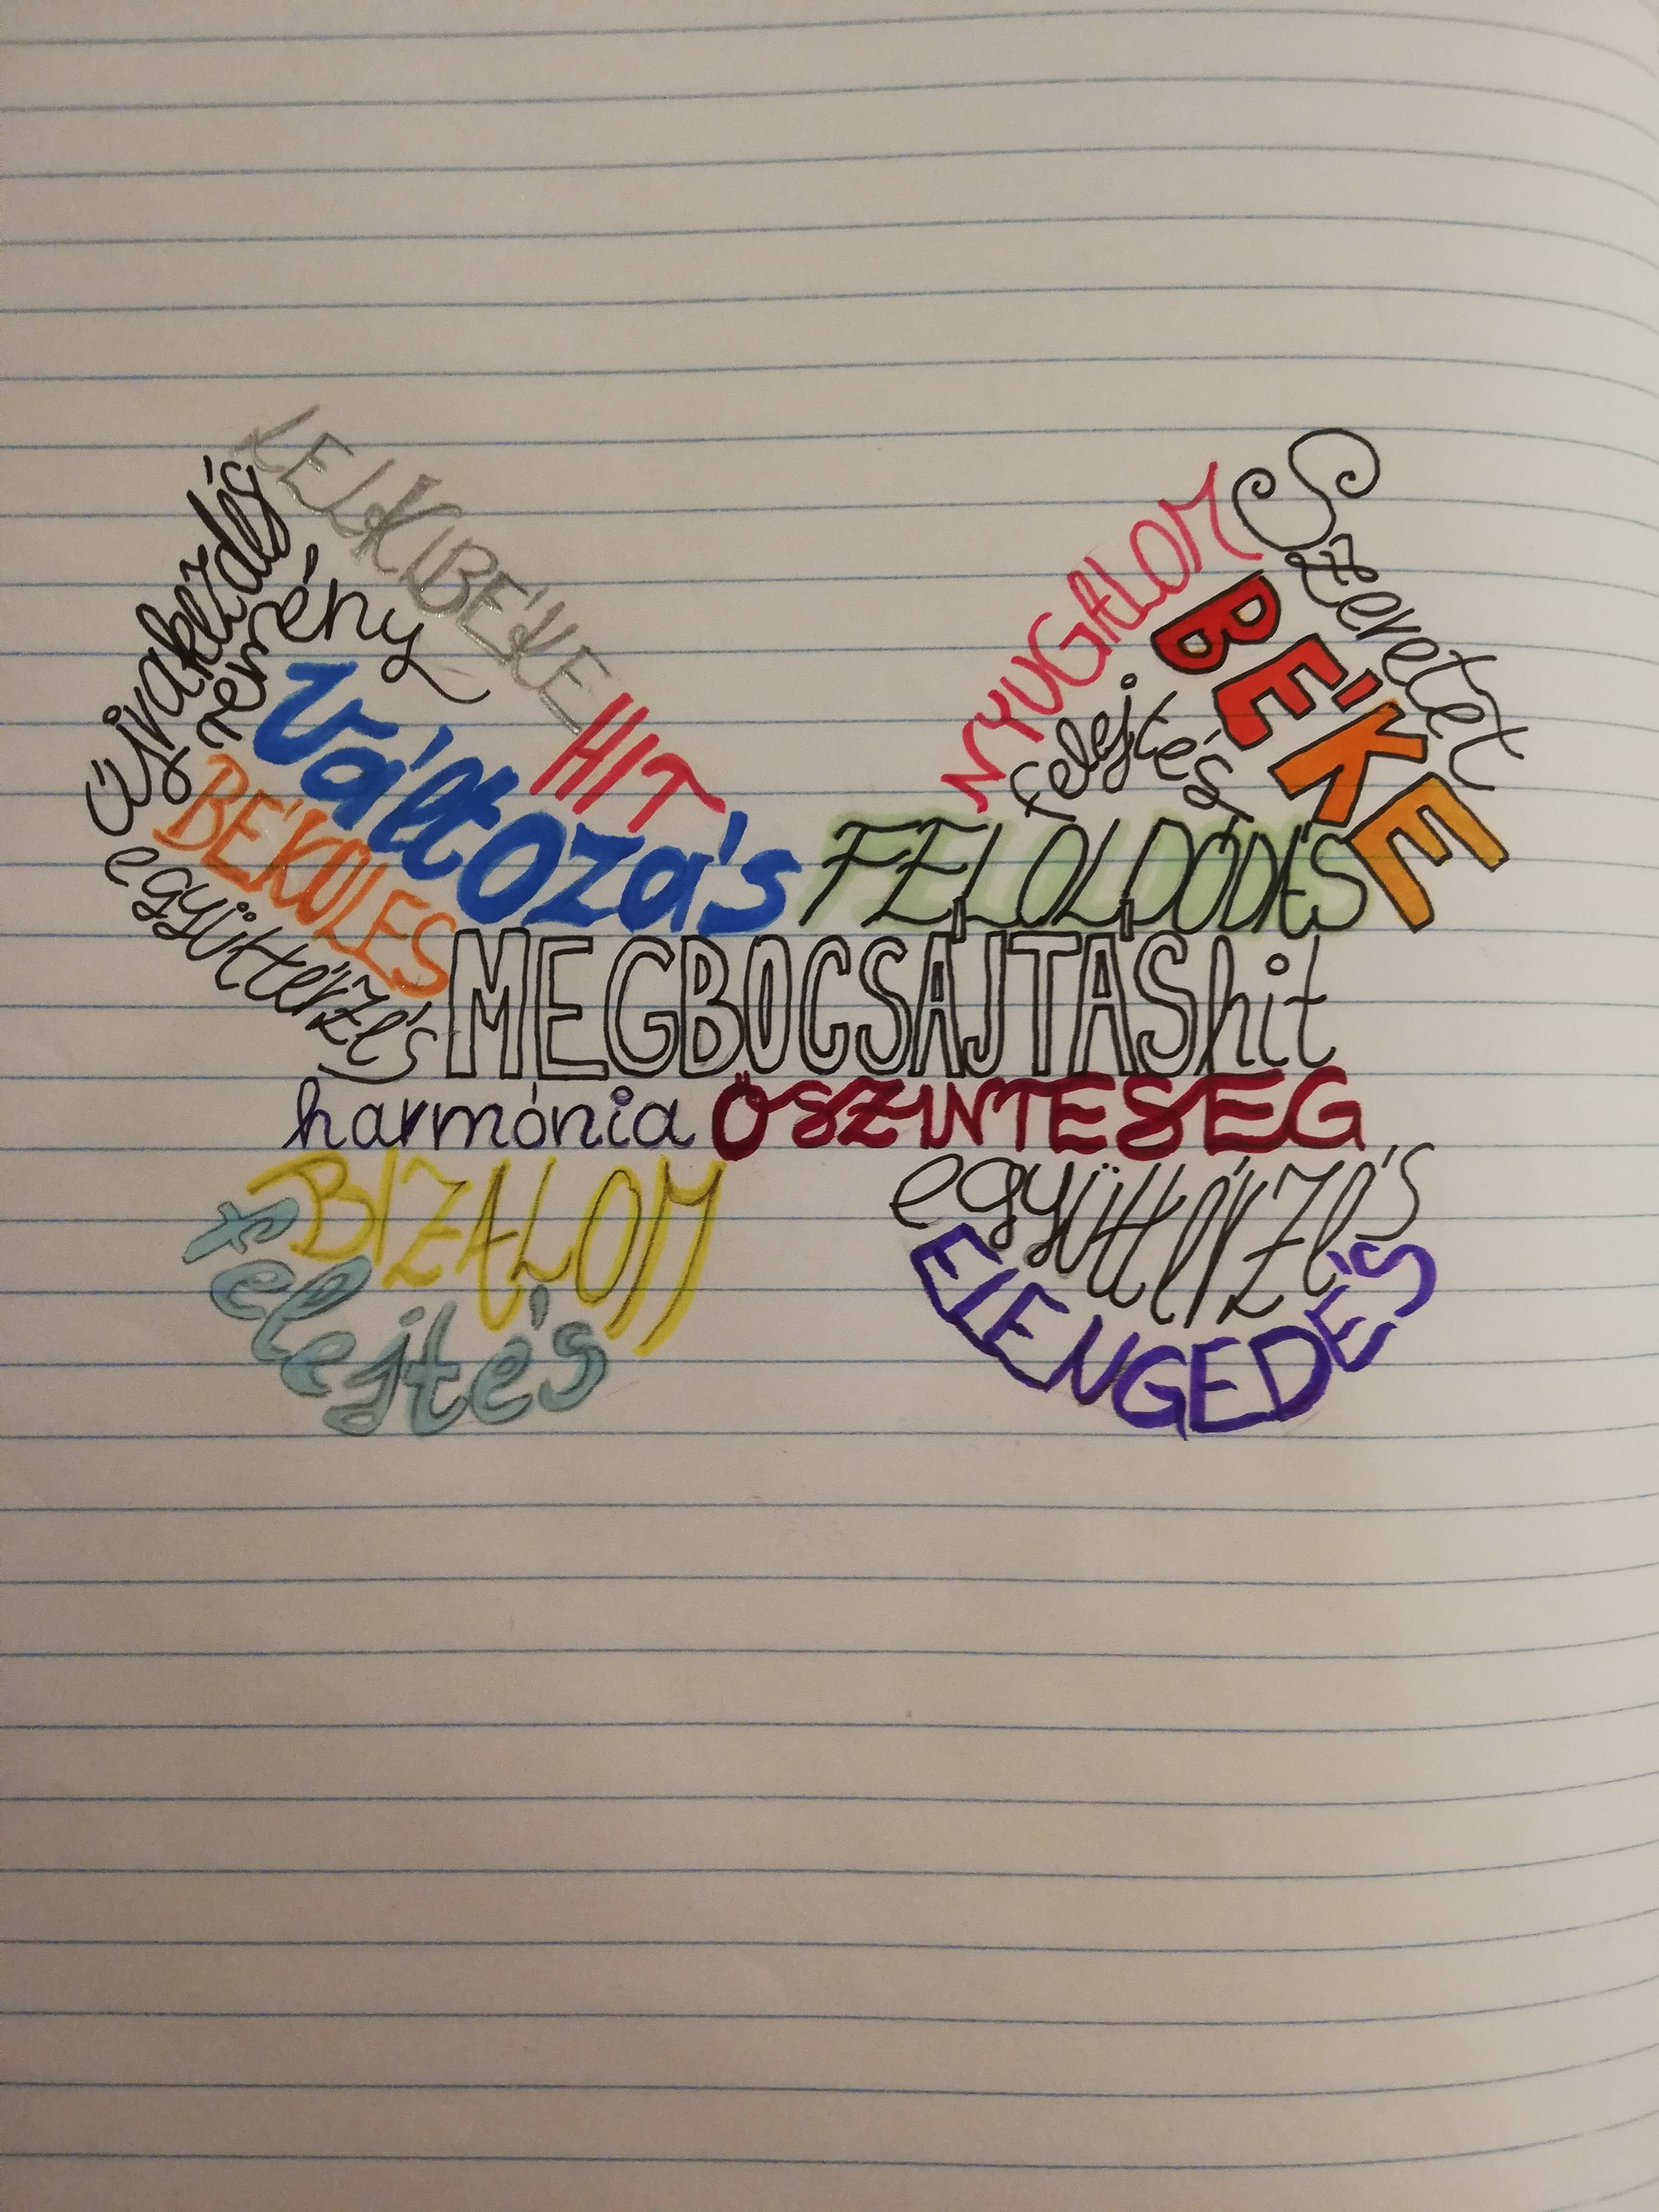 LELKIBÉKE
újrakezdés
remény
HIT
változás
BÉKÜLÉS
együttérzés
NYUGALOM
Szeretet
BÉKE
felejtés
FELOLDÓDÁS
MEGBOCSÁJTÁS hit
harmónia ŐSZINTESÉG
BIZALOM
felejtés
együttérzés
ELENGEDÉS